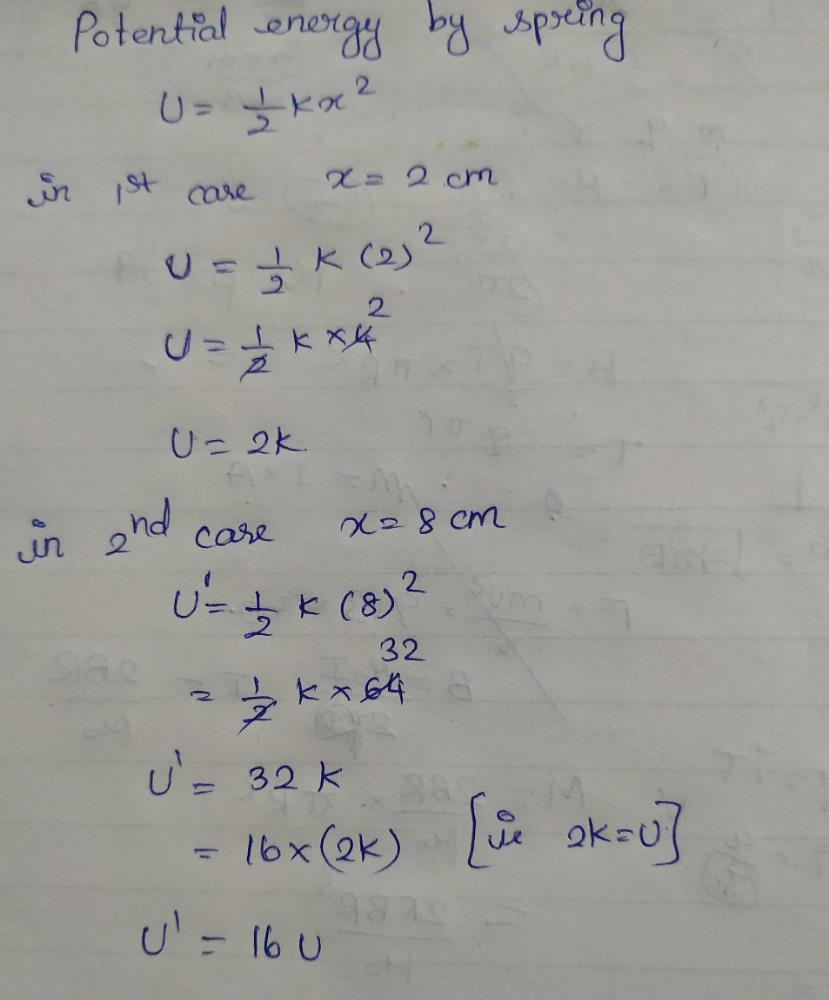 Potential energy by spring
U = 1/2 kx²
in 1st case x = 2 cm
U = 1/2 K (2)²
U = 1/2 K × 4 2
U = 2K
in 2nd case x = 8 cm
U' = 1/2 K (8)²
= 1/2 K × 64 32
U' = 32 K
= 16 × (2K) [ie 2K = U]
U' = 16 U